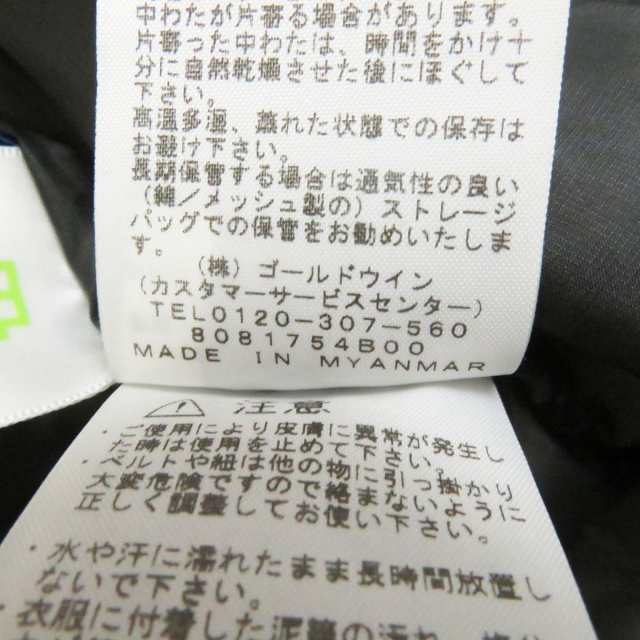 中わたが片寄る場合があります。
片寄った中わたは、時間をかけ十
分に自然乾燥させた後にほぐして
下さい。
高温多湿、蒸れた状態での保存は
お避け下さい。
長期保管する場合は通気性の良い
(綿/メッシュ製の)ストレージ
バッグでの保管をお勧めいたしま
す。
(株)ゴールドウイン
(カスタマーサービスセンター)
TEL0120-307-560
8081754B00
MADE IN MYANMAR
注意
・ご使用により皮膚に異常が発生し
た時は使用を止めて下さい。
・ベルトや紐は他の物に引っ掛かり
大変危険ですので絡まないように
正しく調整してお使い下さい。
・水や汗に濡れたまま長時間放置し
ないで下さい。
・衣服に付着した泥等の汚れ